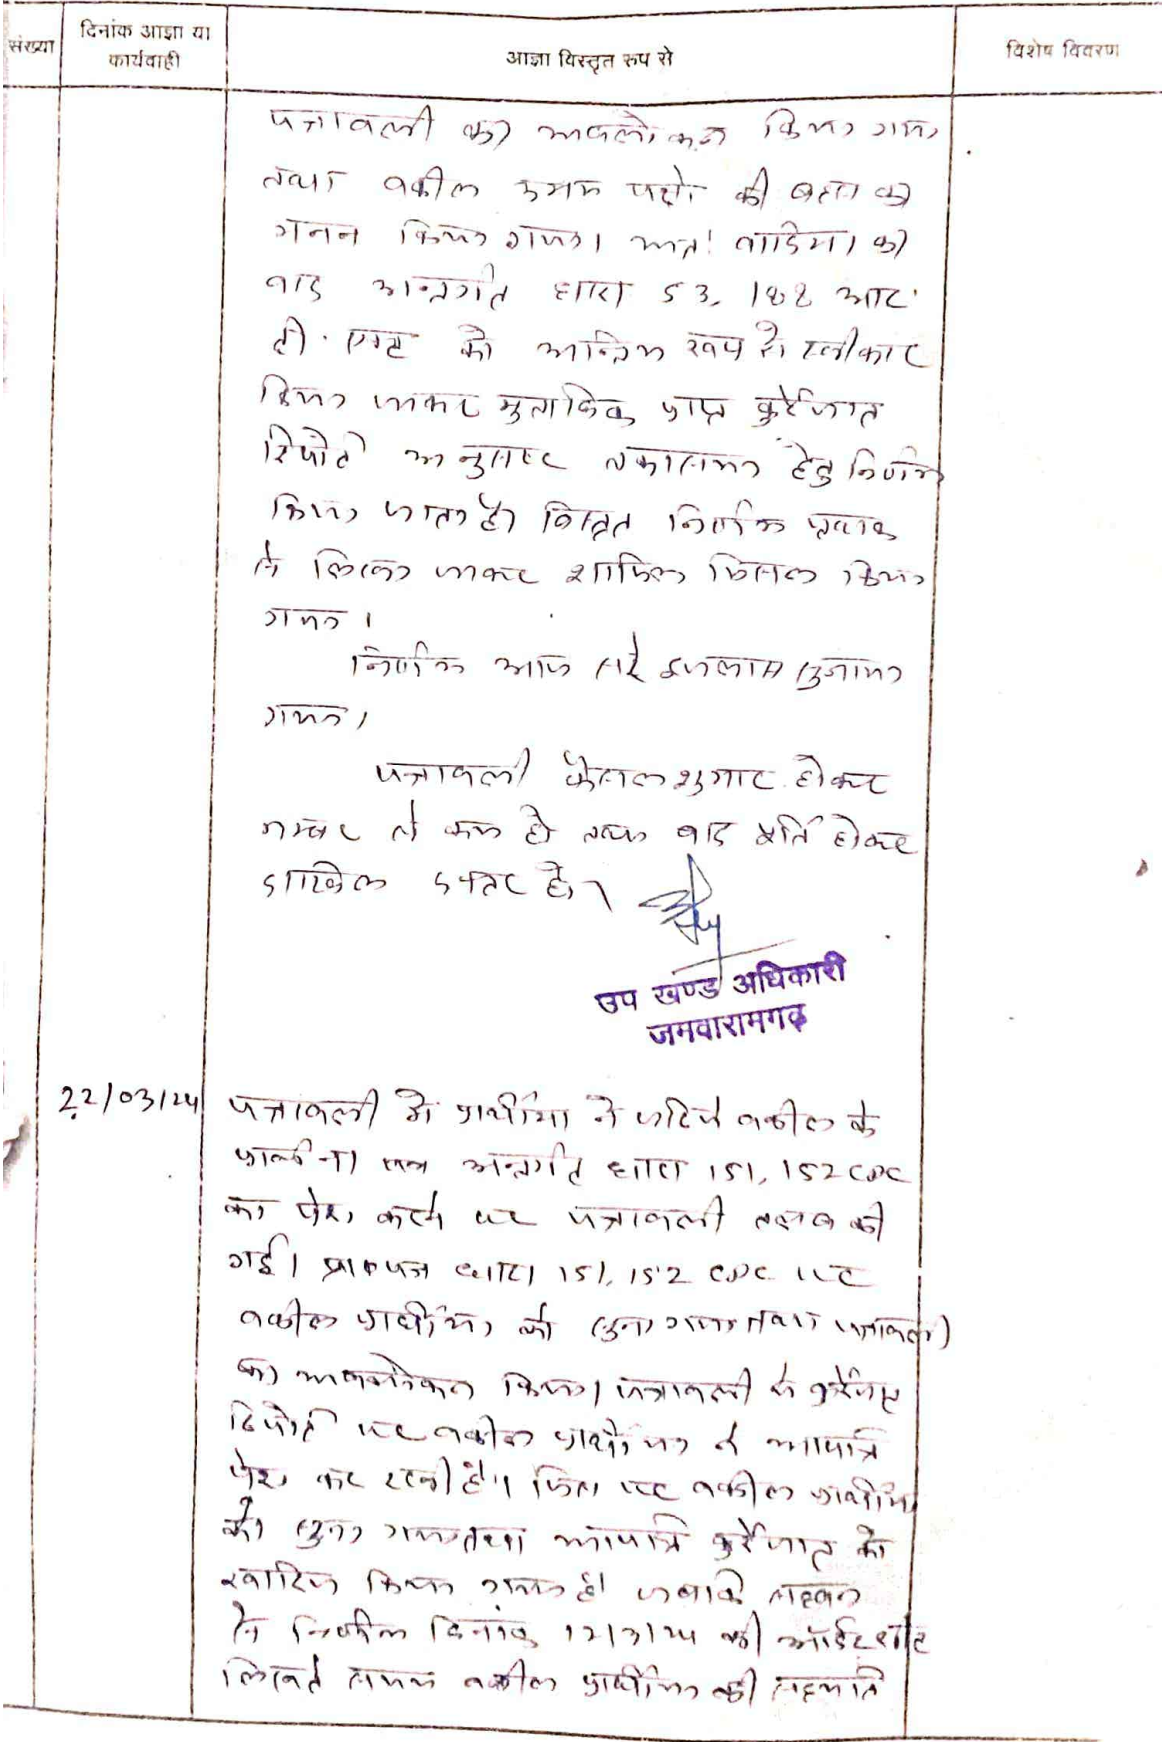 संख्या
दिनांक आज्ञा या
कार्यवाही
आज्ञा विस्तृत रुप से
विशेष विवरण
पत्रावली का अवलोकन किया गया
तथा वकील उभय पक्षो की बहस का
मनन किया गया। अतः वादिया का
वाद अन्तर्गत धारा 53, 188 आर.
टी. एक्ट को अन्तिम रूप से स्वीकार
किया जाकर मुताबिक प्राप्त कुर्रेजात
रिपोर्ट अनुसार तकासमा हेतु निर्णय
किया जाता है। विस्तृत निर्णय पृथक
से लिखा जाकर शामिल मिसल किया
गया।
निर्णय आज सरे इजलास सुनाया
गया।
पत्रावली फैसल शुमार होकर
नम्बर से कम हो तथा बाद पूर्ति होकर
दाखिल दफ्तर हो।
उप खण्ड अधिकारी
जमवारामगढ़
22/03/24
पत्रावली में प्रार्थीया ने जरिये वकील के
प्रार्थना पत्र अन्तर्गत धारा 151, 152 CPC
का पेश करने पर पत्रावली तलब की
गई। प्रा०पत्र धारा 151, 152 CPC पर
वकील प्रार्थीया को सुना गया तथा पत्रावली
का अवलोकन किया। पत्रावली में कुर्रेजात
रिपोर्ट पर वकील प्रार्थीया ने आपत्ति
पेश कर रखी है। जिस पर वकील प्रार्थीया
को सुना गया तथा आपत्ति कुर्रेजात को
खारिज किया गया है। जबकि सहवन
से निर्णय दिनांक 12/3/24 की ऑर्डरशीट
लिखते समय वकील प्रार्थीया की सहमति